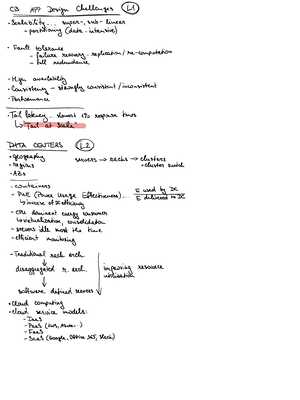 CB APP Design Challenges L1
• Scalability... super-, sub- linear
- partitioning (data-intensive)
• Fault tolerance
- failure recovery, replication / re-computation
- full redundance
• High availability
• Consistency - strongly consistent / inconsistent
• Performance
• Tail latency... slowest 1% response times
↳ "Tail at Scale"
DATA CENTERS L2
• geography servers → racks → clusters
• regions • cluster switch
• AZs
- containers
- PUE (Power Usage Effectiveness)...
↳ increase of efficiency
- CPU dominant energy consumer
↳ virtualization, consolidation
- servers idle most the time
- efficient monitoring
- Traditional rack arch.
disaggregated r. arch. improving resource
utilisation
software defined servers
• Cloud computing
• Cloud service models:
- IaaS
- PaaS
- FaaS
- SaaS (Google, Office 365, Slack)